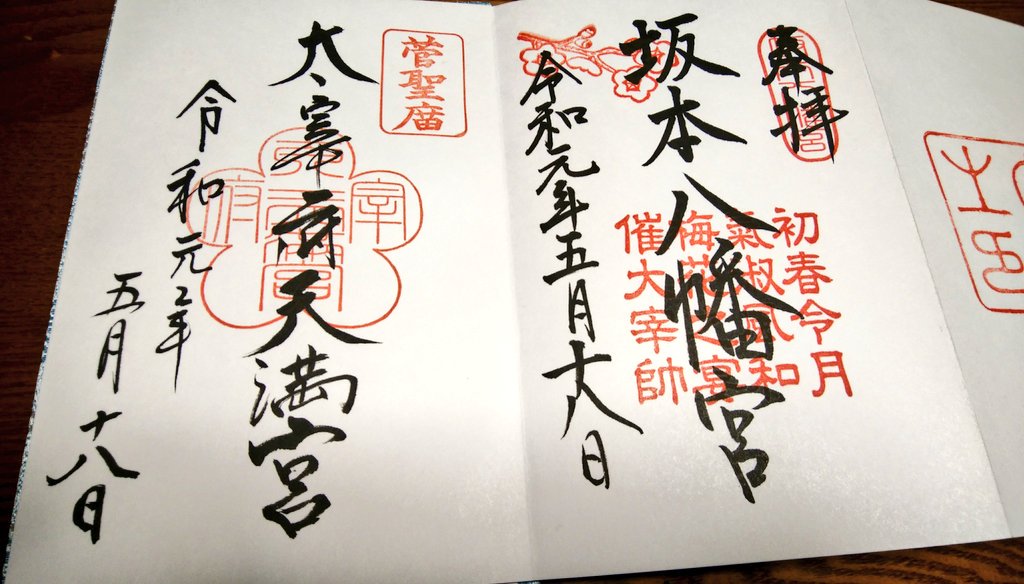 奉拝
坂本八幡宮
初春令月
氣淑風和
梅花之宴
催大宰帥
令和元年五月十八日
菅聖庿
太宰府天満宮
令和元年
五月
十八日